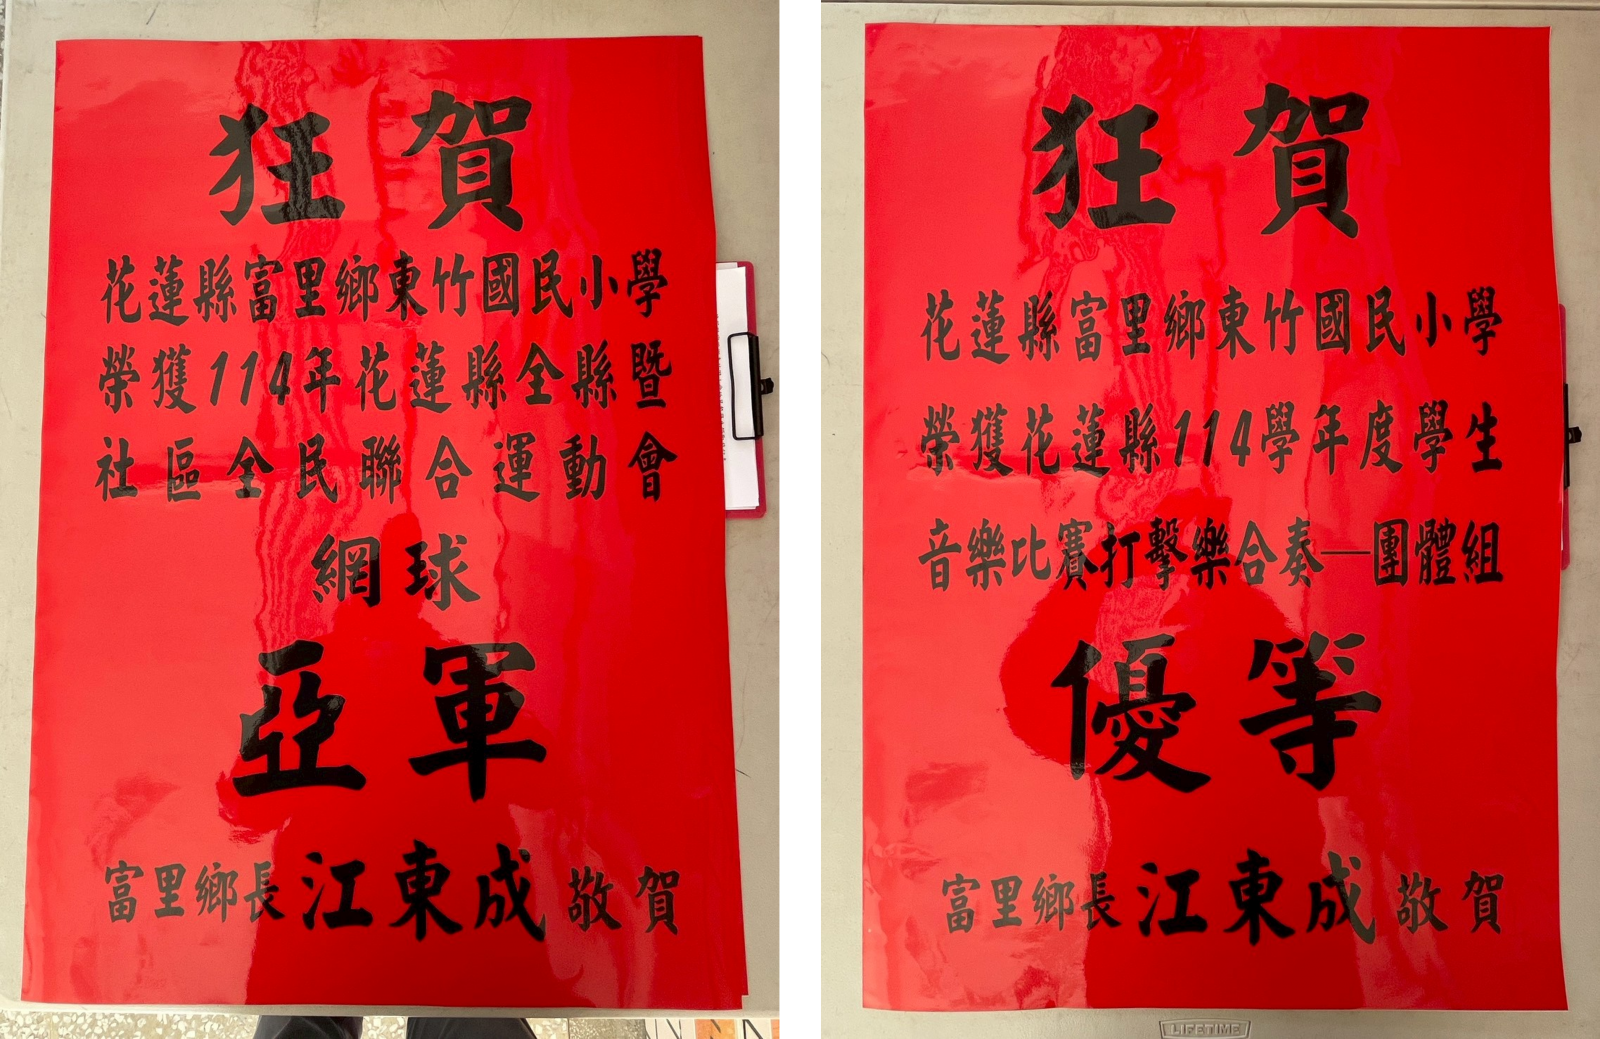 狂賀
花蓮縣富里鄉東竹國民小學
榮獲114年花蓮縣全縣暨
社區全民聯合運動會
網球
亞軍
富里鄉長江東成敬賀
狂賀
花蓮縣富里鄉東竹國民小學
榮獲花蓮縣114學年度學生
音樂比賽打擊樂合奏—團體組
優等
富里鄉長江東成敬賀
LIFETIME